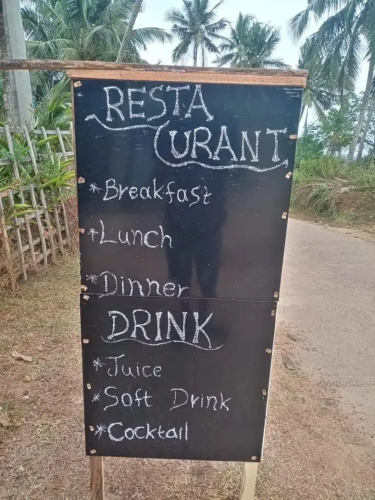 RESTA
URANT
*Breakfast
*Lunch
*Dinner
DRINK
*Juice
*Soft Drink
*Cocktail